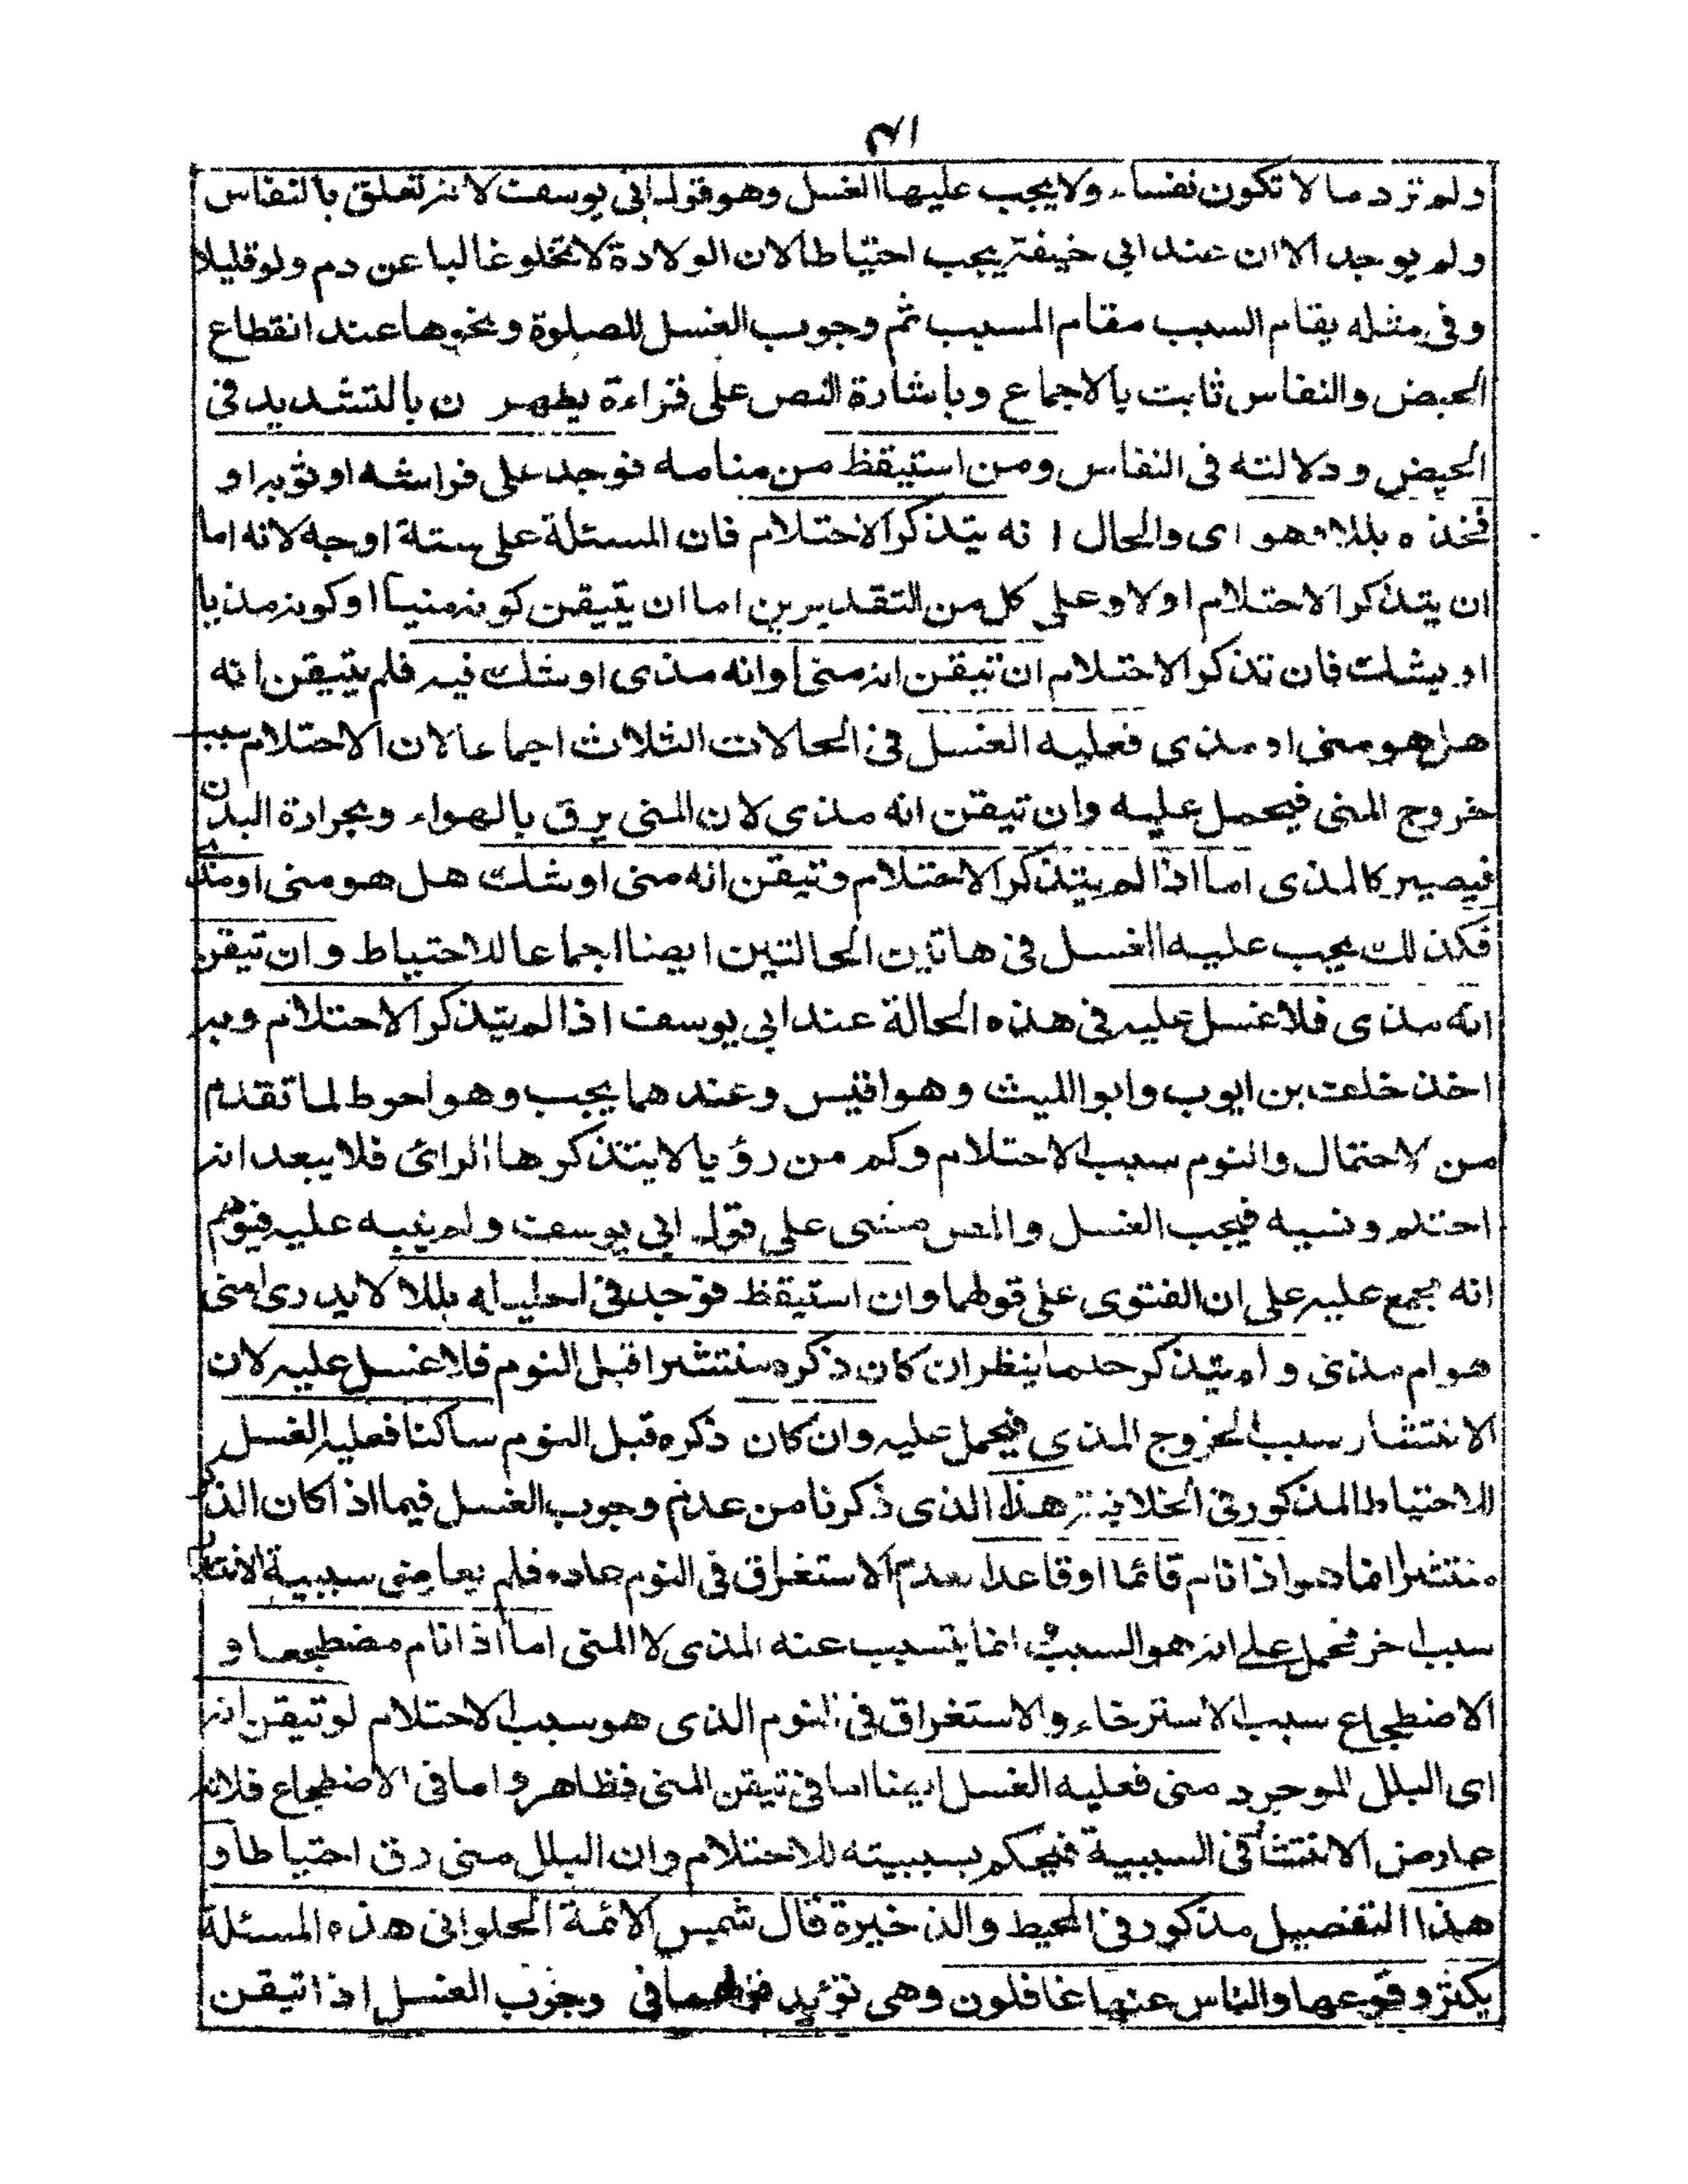 ا۴م
ولم تر دما لا تكون نفساء ولا يجب عليها الغسل وهو قول ابى يوسف لانه تعلق بالنفاس
ولم يوجد الا ان عند ابى حنيفة يجب احتياطا لان الولادة لا تخلو غالبا عن دم ولو قليلا
وفى مثله يقام السبب مقام المسبب ثم وجوب الغسل للصلوة ونحوها عند انقطاع
الحيض والنفاس ثابت بالاجماع وباشارة النص على قراءة يطهرن بالتشديد فى
الحيض ودلالته فى النفاس ومن استيقظ من منامه فوجد على فراشه او ثوبه او
فخذه بللا وهو اى والحال انه يتذكر الاحتلام فان المسئلة على ستة اوجه لانه اما
ان يتذكر الاحتلام اولا وعلى كل من التقديرين اما ان يتيقن كونه منيا او كونه مذيا
او يشك فان تذكر الاحتلام ان تيقن انه منى او انه مذى او شك فيه فلم يتيقن انه
هل هو منى او مذى فعليه الغسل فى الحالات الثلاث اجماعا لان الاحتلام سبب
خروج المنى فيحمل عليه وان تيقن انه مذى لان المنى يرق بالهواء وبحرارة البدن
فيصير كالمذى اما اذا لم يتذكر الاحتلام وتيقن انه منى او شك هل هو منى او مذى
فكذلك يجب عليه الغسل فى هاتين الحالتين ايضا اجماعا للاحتياط وان تيقن
انه مذى فلا غسل عليه فى هذه الحالة عند ابى يوسف اذا لم يتذكر الاحتلام وبه
اخذ خلف بن ايوب وابو الليث وهو اقيس وعندهما يجب وهو احوط لما تقدم
من الاحتمال والنوم سبب الاحتلام وكم من رؤيا لا يتذكرها الرائى فلا يبعد انه
احتلم ونسيه فيجب الغسل والمص مشى على قول ابى يوسف ولم ينبه عليه فيوهم
انه مجمع عليه على ان الفتوى على قولهما وان استيقظ فوجد فى احليله بللا لا يدرى امنى
هو ام مذى ولم يتذكر حلما ينظر ان كان ذكره منتشرا قبل النوم فلا غسل عليه لان
الانتشار سبب لخروج المذى فيحمل عليه وان كان ذكره قبل النوم ساكنا فعليه الغسل
للاحتياط المذكور فى الخلافية هذا الذى ذكرنا من عدم وجوب الغسل فيما اذا كان الذكر
منتشرا انما هو اذا نام قائما او قاعدا لعدم الاستغراق فى النوم عاده فلم يعارض سببية الانتشار
سبب اخر فحمل على انه هو السبب انما يتسبب عنه المذى لا المنى اما اذا نام مضطجعا و
الاضطجاع سبب الاسترخاء والاستغراق فى النوم الذى هو سبب الاحتلام لو تيقن انه
اى البلل الموجود منى فعليه الغسل ايضا اما فى تيقن المنى فظاهر واما فى الاضطجاع فلانه
عارض الانتشار فى السببية فيحكم بسببيته للاحتلام وان البلل منى رق احتياطا و
هذا التفصيل مذكور فى المحيط والذخيرة قال شمس الائمة الحلوانى هذه المسئلة
يكثر وقوعها والناس عنها غافلون وهى تؤيد فى وجوب الغسل اذا تيقن